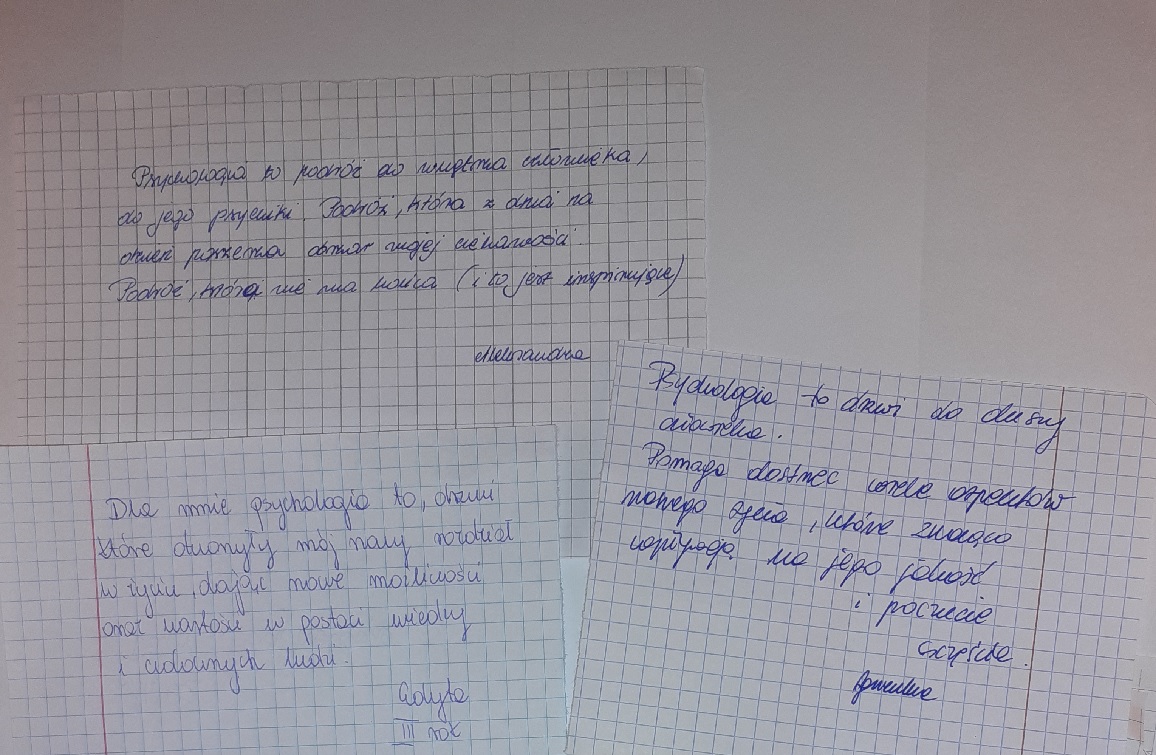 Psychologia to podróż do wnętrza człowieka,
do jego psychiki. Podróż, która z dnia na
dzień poszerza obszar mojej ciekawości.
Podróż, która nie ma końca (i to jest inspirujące)
Aleksandra
Dla mnie psychologia to, drzwi
które otworzyły mój nowy rozdział
w życiu, dając nowe możliwości
oraz wartości w postaci wiedzy
i cudownych ludzi.
Edyta
III rok
Psychologia to drzwi do duszy
człowieka.
Pomaga dostrzec wiele aspektów
naszego życia, które znacząco
wpływają na jego jakość
i poczucie
szczęścia.